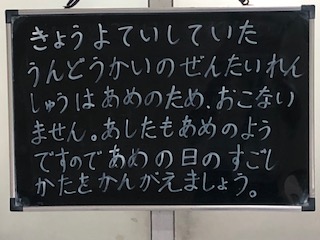 きょうよていしていた
うんどうかいのぜんたいれん
しゅうはあめのため、おこない
ません。あしたもあめのよう
ですのであめの日のすごし
かたをかんがえましょう。